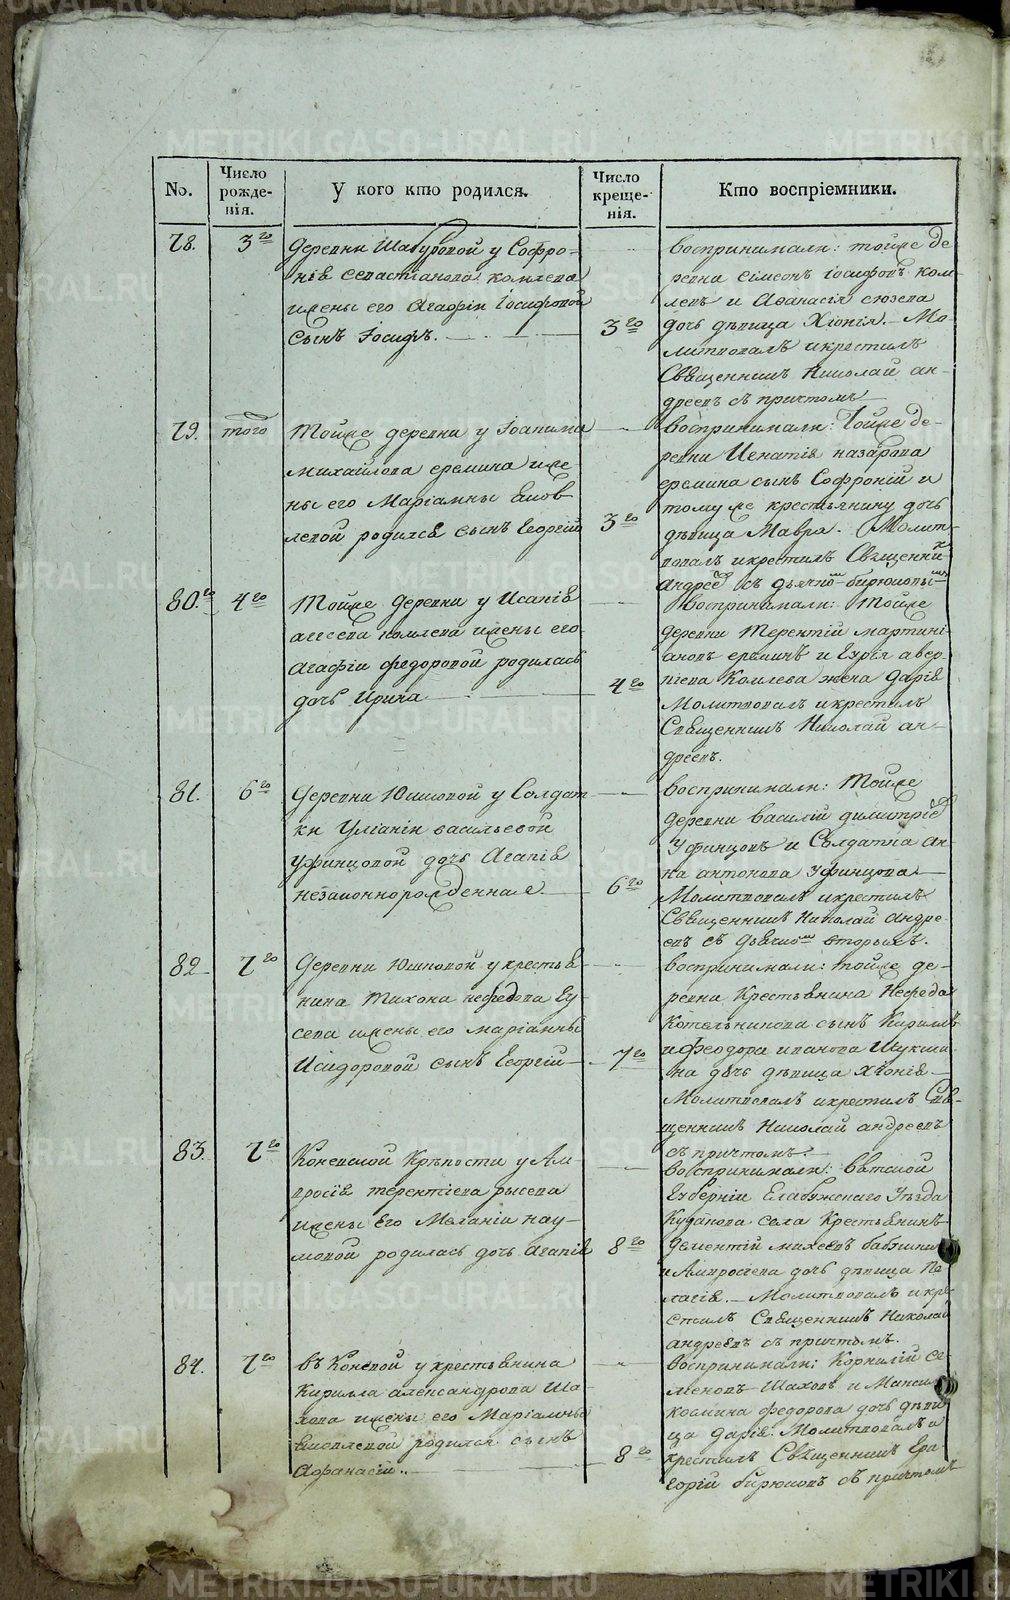 No.
Число рожде-нія.
У кого кто родился.
Число креще-нія.
Кто воспріемники.
78.
3го
Деревни Шабуровой у Софро-
нія Севастіанова комлева
жены его Агафіи Іосифовой
сынъ Іосифъ.
3го
воспринимали: тойже де
ревни Сімеонъ Іосифовъ ком-
левъ и Афанасія
дочь дѣвица Хіонія. Мо-
литвовалъ и крестилъ
Священникъ Николай ан-
дреевъ съ причтомъ
79.
того
Тойже деревни у Іоакима
михайлова еремина же-
ны его Маріамны Яков
левой родился сынъ Георгій
3го
воспринимали: Тойже де-
ревни Игнатія назарова
еремина сынъ Софроній и
томуже крестьянину дочь
дѣвица Мавра. Молит-
вовалъ и крестилъ Священни
Андрее съ дьячко бирюковы
80.
4го
Тойже деревни у Исакія
комлева жены его
агафіи федоровой родилась
дочь Ирина
4го
воспринимали: Тойже
деревни Терентій мартині-
ановъ ереминъ и Гурія авер
кіева Комлева жена дарія
Молитвовалъ и крестилъ
Священникъ Николай ан-
дреевъ.
81.
6го
Деревни Юшковой у Солдат
ки Уліаніи васильевой
уфинцовой дочь Агапія
незаконнорожденная
6го
воспринимали: Тойже
деревни василій димитріе
Уфинцовъ и Солдатка ан-
на антонова Уфинцова.
Молитвовалъ и крестилъ
Священникъ Николай Андре-
евъ съ дьячко вторымъ.
82
7го
Деревни Юшковой у крестья
нина Тихона нефедова Гу
сева жены его маріамны
Исидоровой сынъ Георгій
7го
воспринимали: тойже де-
ревни Крестьянина Нефеда
Котельникова сынъ Кирилъ
и феодора иванова Шукши
на дочь дѣвица Хіонія
Молитвовалъ и крестилъ Свя-
щенникъ Николай андреевъ
съ причтомъ.
83.
7го
Коневской Крѣпости у Ам-
вросія терентіева рысева
жены Его Меланіи нау-
мовой родилась дочь Агапія
8го
воспринимали: вятской
Губерніи Елабужскаго Уѣзда
села Крестьянинъ
дементій михеевъ бабкинъ
и Амвросіева дочь дѣвица Пе
лагія. Молитвовалъ и кре
стилъ Священникъ Николай
андреевъ съ причтомъ.
84.
7го
въ Коневой у крестьянина
Кирилла александрова Ша-
хова жены его Маріамны
Яковлевой родился сынъ
Афанасій.
8го
воспринимали: Корнилій се-
меновъ Шаховъ и Макси
космина федорова дочь дѣви
ца дарія Молитвовалъ и
крестилъ Священникъ Гри
горій бирюковъ съ причтомъ
METRIKI.GASO-URAL.RU